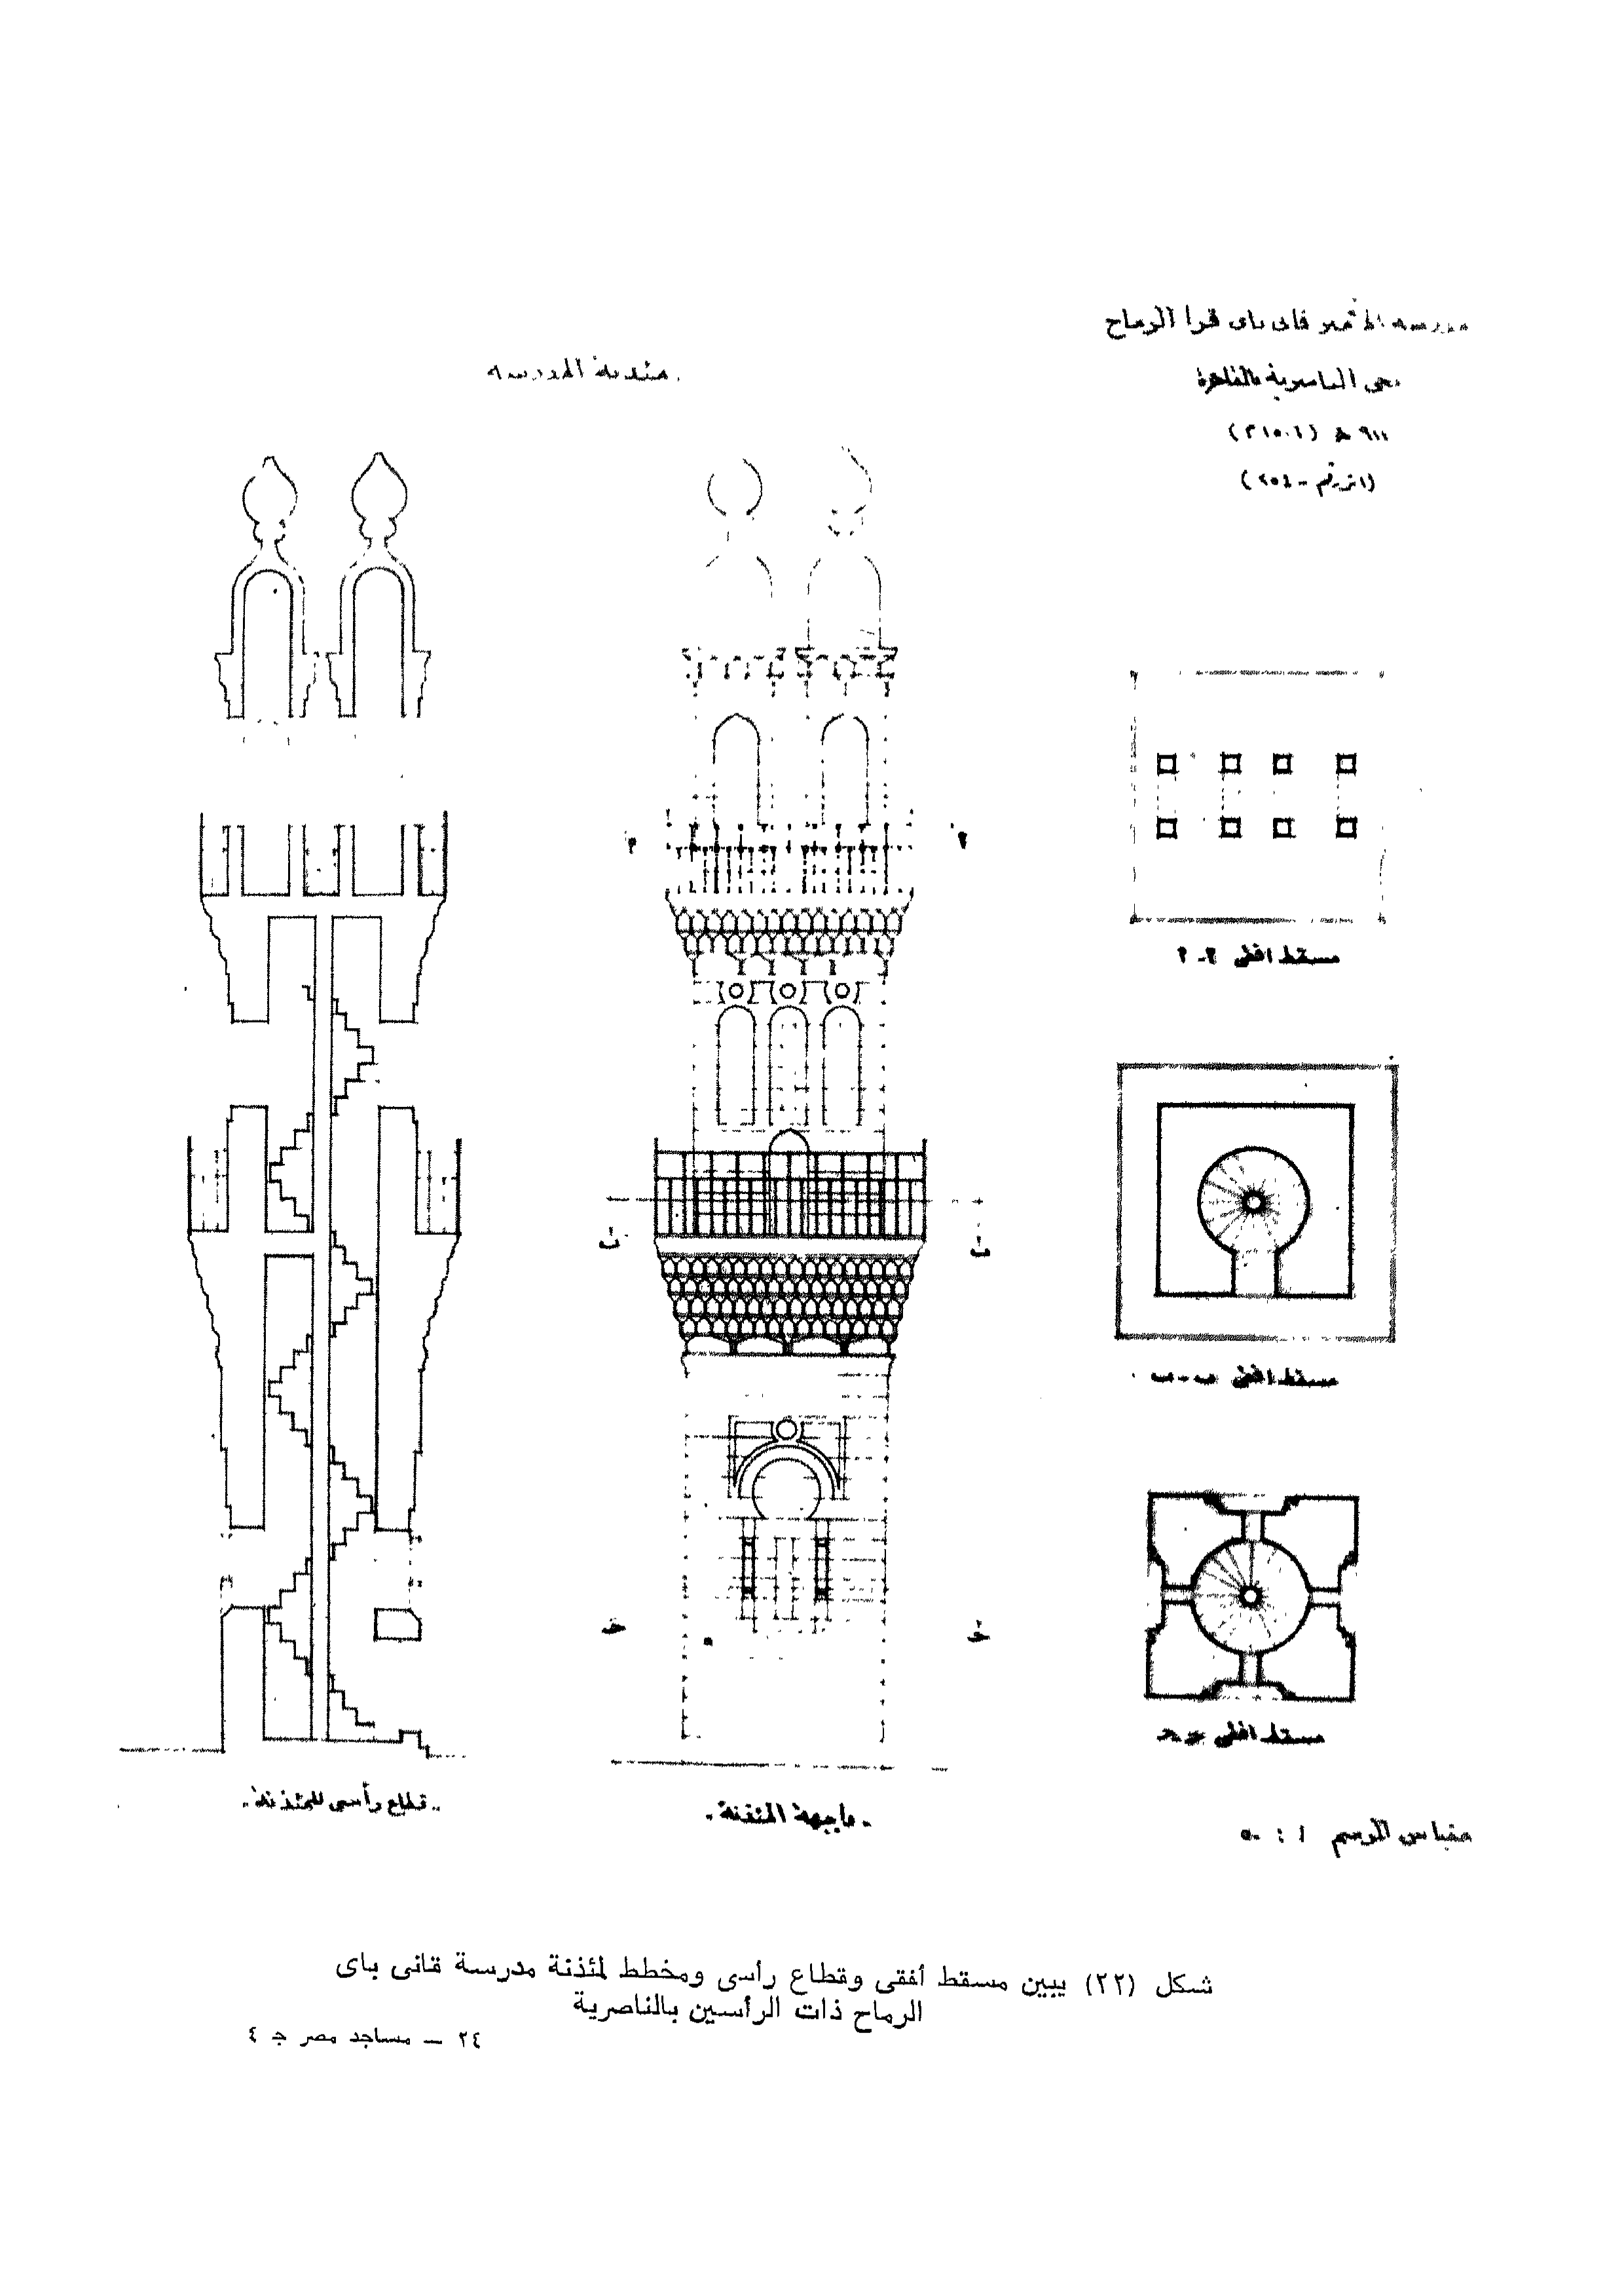 مدرسة الأمير قانى باى قرا الرماح
بحى الناصرية بالقاهرة
٩١١ هـ (١٥٠٦ م)
(اثر رقم - ٢٥٤)
مئذنة المدرسة
م
م
مسقط افقى م - م
ب
ب
مسقط افقى ب - ب
ج
ج
مسقط افقى ج - ج
قطاع رأسى للمئذنة
واجهة المئذنة
مقياس الرسم ١ : ٥٠
شكل (٢٢) يبين مسقط أفقى وقطاع رأسى ومخطط لمئذنة مدرسة قانى باى
الرماح ذات الرأسين بالناصرية
٢٤ — مساجد مصر جـ ٤